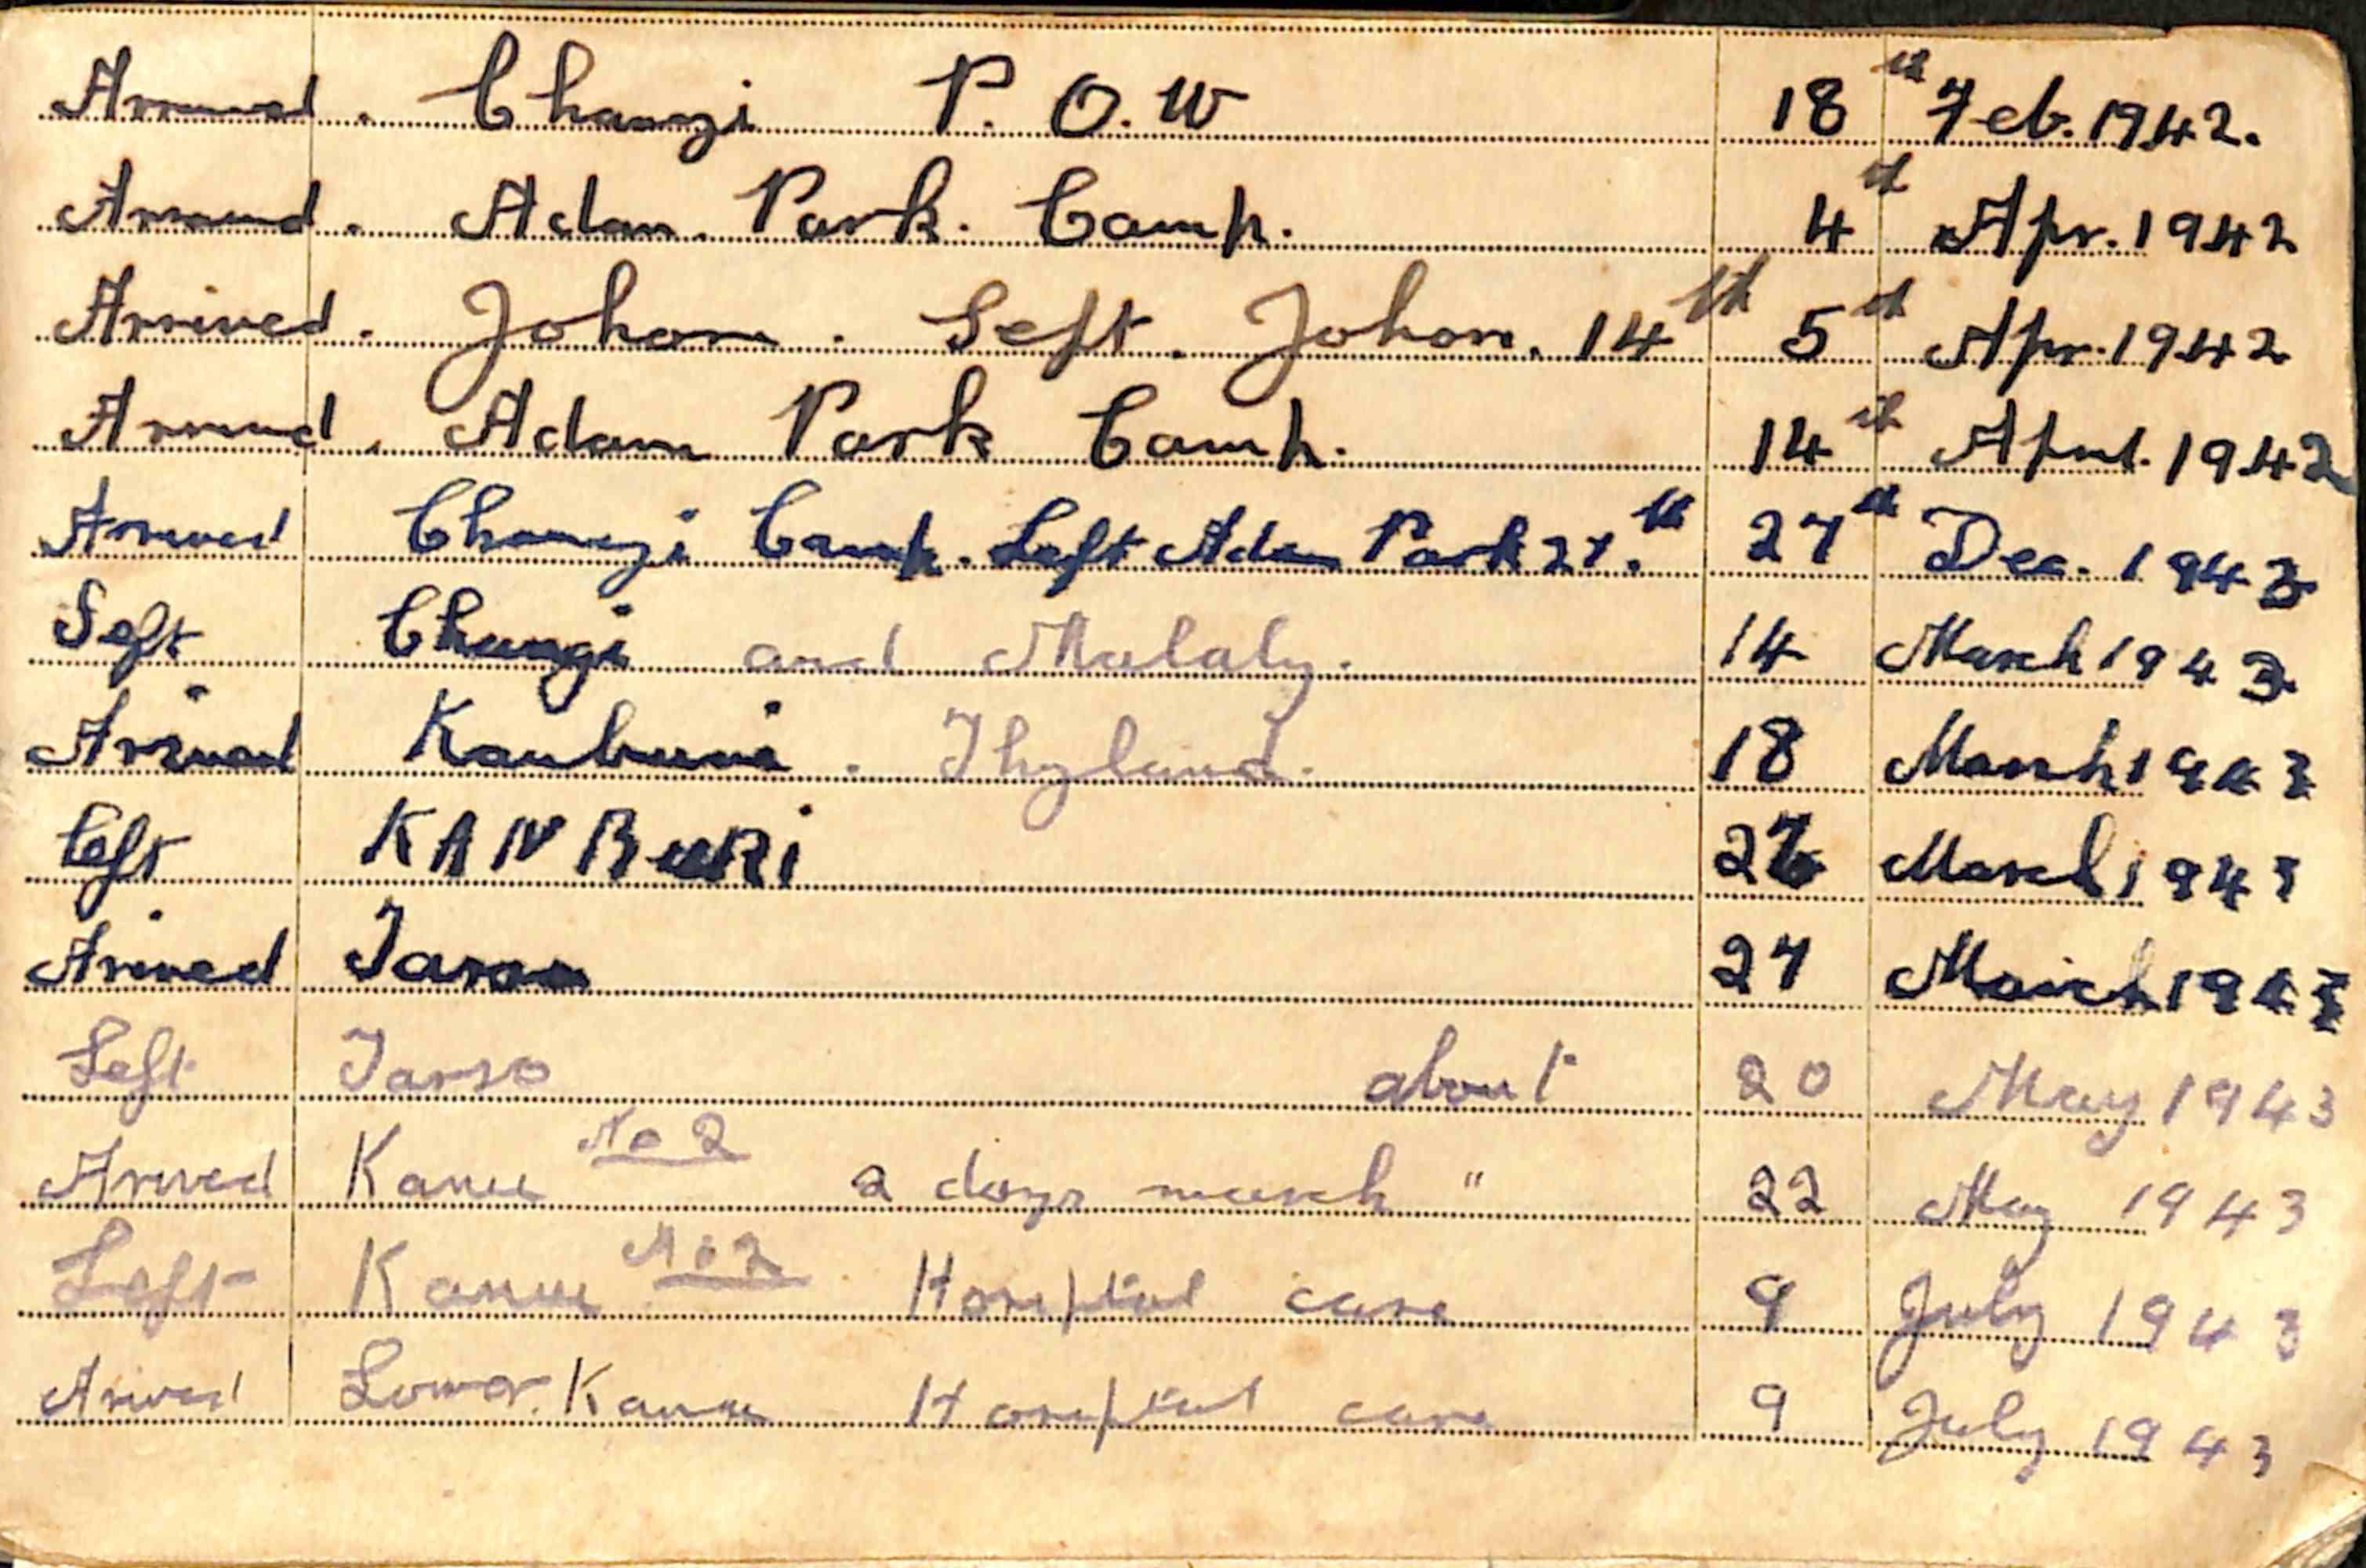 Arrived. Changi P.O.W 18th Feb. 1942.
Arrived. Adam. Park. Camp. 4th Apr. 1942
Arrived. Johore. Left. Johore. 14th 5th Apr. 1942
Arrived. Adam Park Camp. 14th April. 1942
Arrived Changi Camp. Left Adam Park 27.th 27th Dec. 1943
Left Changi and Malaly. 14 March 1943
Arrived Kanburi. Thyland. 18 March 1943
Left KANBURI March 1943
Arrived Tarso 27 March 1943
Left Tarso about 20 May 1943
Arived Kanu No 2 2 days march " 22 May 1943
Left Kanu No 2 Horsptial care 9 July 1943
Arived Lower. Kanu Horsptial care 9 July 1943